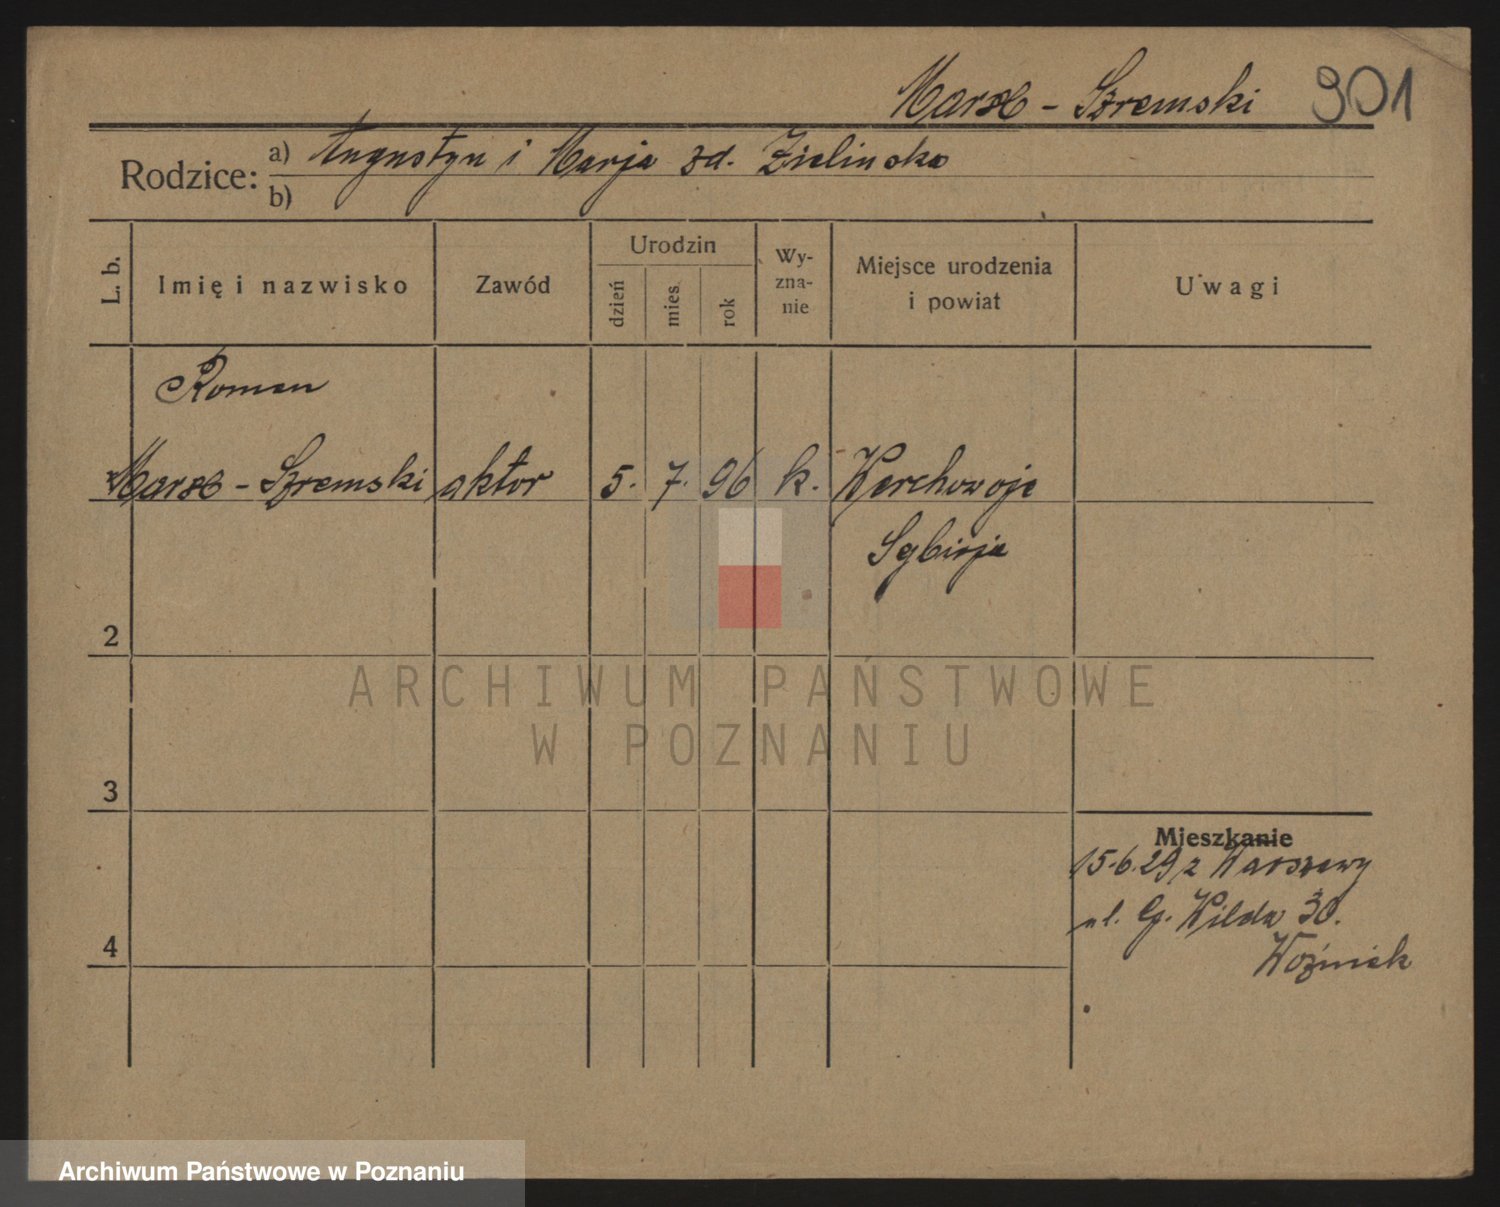 Marx - Szremski 901
Rodzice: a) Augustyn i Marja zd. Zielinska
b)
L. b. Imię i nazwisko Zawód Urodzin dzień mies. rok Wyznanie Miejsce urodzenia i powiat Uwagi
Roman
Marx - Szremski aktor 5. 7. 96 k. Werchowoje
Sybirja
2
3
Mieszkanie
15.6.29 z Warszawy
ul. G. Wilda 30.
4
Woźniak
ARCHIWUM PAŃSTWOWE
W POZNANIU
Archiwum Państwowe w Poznaniu